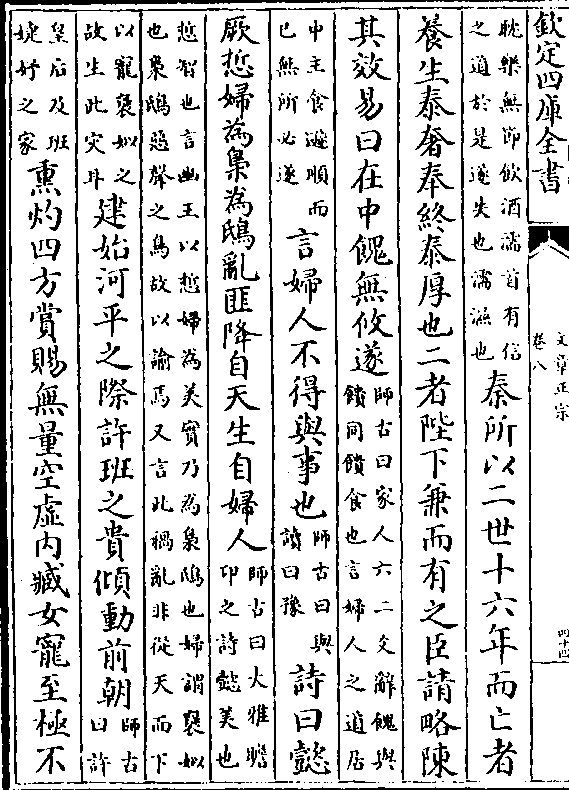 欽定四庫全書
文章正宗
卷八
四十四
耽樂無節飲酒濡首有信
之道於是遂失也濡濕也
秦所以二世十六年而亡者
養生泰奢奉終泰厚也二者陛下兼而有之臣請略陳
其效易曰在中餽無攸遂
師古曰家人六二爻辭餽與
饋同饋食也言婦人之道居
中主食遜順而
已無所必遂
言婦人不得與事也
師古曰與
讀曰豫
詩曰懿
厥悊婦為梟為鴟亂匪降自天生自婦人
師古曰大雅瞻
卬之詩懿美也
悊智也言幽王以悊婦為美實乃為梟鴟也婦謂褒姒
也梟鴟惡聲之鳥故以諭焉又言此禍亂非從天而下
以寵褒姒之
故生此災耳
建始河平之際許班之貴傾動前朝
師古
曰許
皇后及班
婕妤之家
熏灼四方賞賜無量空虛内臧女寵至極不